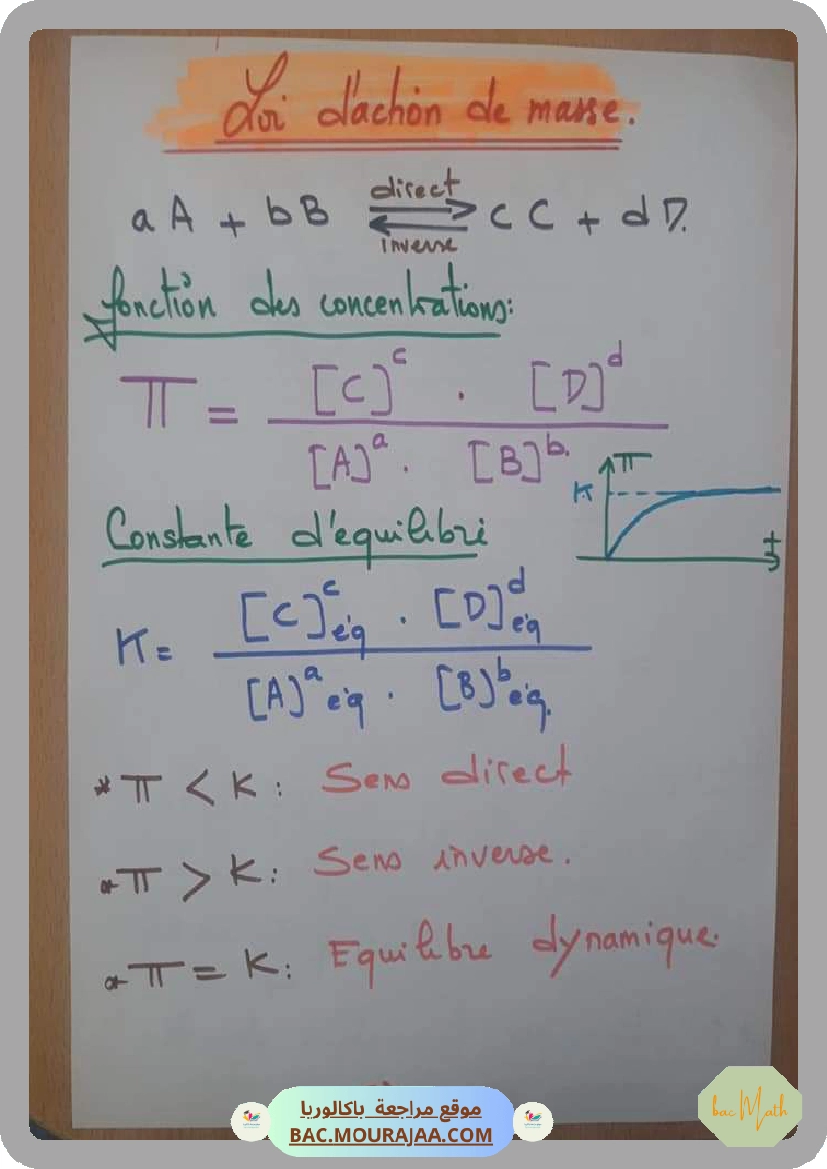 Loi d'action de masse.
direct
aA + bB ⇌ cC + dD.
inverse
fonction des concentrations:
π = [C]^c . [D]^d / [A]^a . [B]^b.
π
K
t
Constante d'equilibri
K = [C]^c éq . [D]^d éq / [A]^a éq . [B]^b éq.
* π < K : Sens direct
* π > K : Sens inverse.
* π = K : Equilibre dynamique.
موقع مراجعة باكالوريا
BAC.MOURAJAA.COM
bac Math